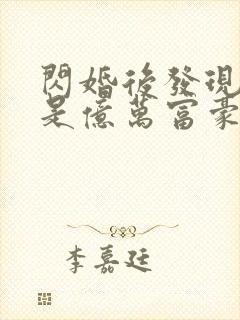 閃婚後發現
是億萬富豪
李嘉廷